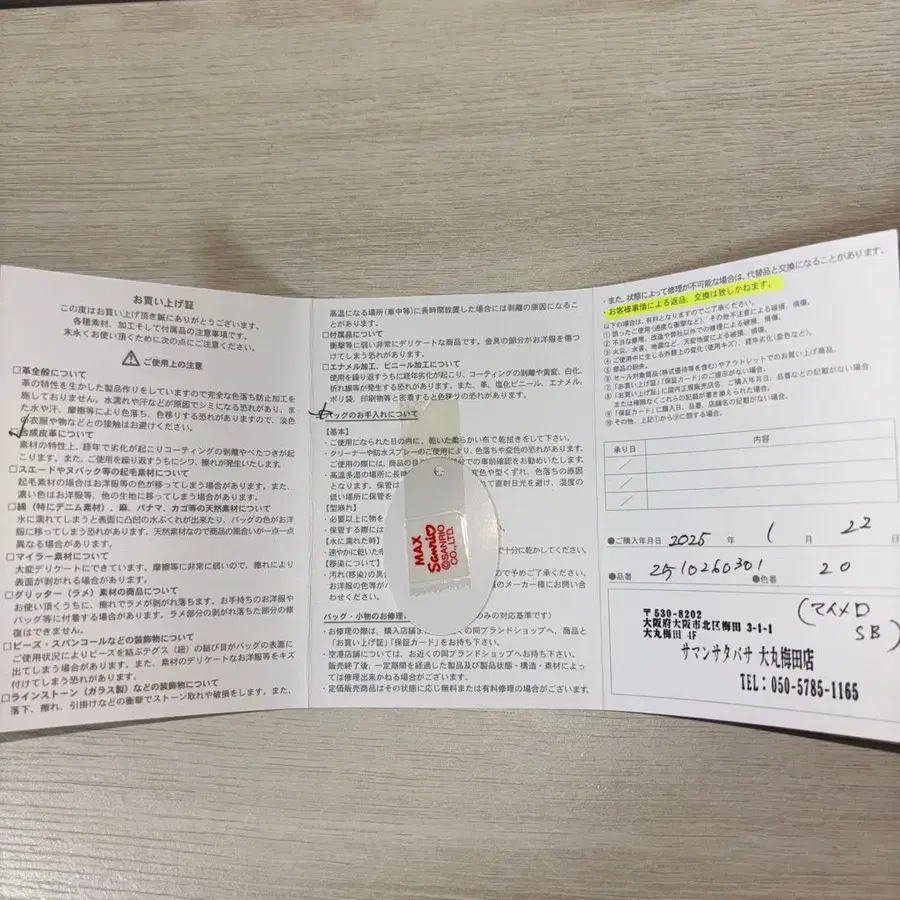 お買い上げ証
この度はお買い上げ頂き誠にありがとうございます。
各種素材、加工そして付属品の注意事項です。
末永くお使い頂くために次の点にご注意ください。
ご使用上の注意
□革全般について
革の特性を生かした製品作りをしていますので完全な色落ち防止加工を
施しておりません。水濡れや汗などが原因でシミになる恐れがあり、ま
た水や汗、摩擦等により色落ち、色移りする恐れがありますので、淡色
の衣服や物などとの接触はお避けください。
□合成皮革について
素材の特性上、経年で劣化が起こりコーティングの剥離やべたつきが起
こります。また、ご使用を繰り返すうちにシワ、擦れが発生いたします。
□スエードやヌバック等の起毛素材について
起毛素材の場合はお洋服等の色が移ってしまう場合があります。また、
濃い色はお洋服等、他の生地に移ってしまう場合があります。
□綿（特にデニム素材）、麻、パナマ、カゴ等の天然素材について
水に濡れてしまうと表面に凸凹の水ぶくれが出来たり、バッグの色がお洋
服に移ってしまう恐れがあります。天然素材なので商品の風合いが一点一点
異なる場合があります。
□マイラー素材について
大変デリケートにできています。摩擦等に非常に弱いので、擦れにより
表面が剥がれる場合があります。
□グリッター（ラメ）素材の商品について
お使い頂くうちに、擦れでラメが剥がれ落ちます。お手持ちのお洋服や
バッグ等に付着する場合があります。ラメ部分の剥がれ落ちた部分の修
復はできません。
□ビーズ・スパンコールなどの装飾物について
ご使用状況によりビーズを結ぶテグス（紐）の結び目がバッグの表面に
出てしまう場合があります。また、素材のデリケートなお洋服等をキズ
付けてしまう恐れがあります。
□ラインストーン（ガラス製）などの装飾物について
落下、擦れ、引掛けなどの衝撃でストーン取れや破損をします。また、
高温になる場所（車中等）に長時間放置した場合には剥離の原因になるこ
とがあります。
□付属品について
衝撃等に弱い非常にデリケートな商品です。金具の部分がお洋服を傷つ
けてしまう恐れがあります。
□エナメル加工、ビニール加工について
使用を繰り返すうちに経年劣化が起こり、コーティングの剥離や黄変、白化、
折れ線等が発生する恐れがあります。また、革、塩化ビニール、エナメル、
ポリ袋、印刷物等と密着すると色移りの恐れがあります。
バッグのお手入れについて
【基本】
・ご使用になられた日の内に、乾いた柔らかい布で乾拭きをして下さい。
・クリーナーや防水スプレーのご使用により、色落ちや変色の恐れがあります。
ご使用の際には、商品の目 分での事前確認をお勧めいたします。
・高温多湿の場所に長時 変色や型くずれ、色落ちの原因
となります。保管は れて直射日光を避け、湿度の
低い場所に保管を
【型崩れ】
・必要以上に物を
・保管する際には
【水に濡れた時】
・速やかに乾いた布 で十分に乾かしてください。
【移染について】
・汚れ(移染)の具合 ので予めご了承ください。
お洋服の色等が のメーカー様にお問い合
わせください。
MAX
Sanrio
©SANRIO
CO.,LTD.
バッグ・小物のお修理、 のみの対応基準です）
・お修理の際は、購入店舗ま くの同ブランドショップへ、商品と
「お買い上げ証」「保証カード」をお持ち下さい。
・空港店舗については、お近くの同ブランドショップへお持ち下さい。
販売終了後、一定期間を経過した製品及び製品状態・構造・素材によっ
ては修理出来かねる場合がございます。
・定価販売商品はその状態に応じ無料または有料修理の場合がございます。
・また、状態によって修理が不可能な場合は、代替品と交換になることがあります。
・お客様事情による返品、交換は致しかねます。
以下の場合は、有料となりますのでご了承ください。
① 誤ったご使用（過度な衝撃など）、その他不注意による破損、損傷。
② 不当な修理、改造や弊社以外での修理による破損、損傷。
③ 火災、水害、地震など、天変地変による破損、損傷。
④ ご使用中に生じる外観上の変化（使用キズ）、経年劣化（変色など）。
⑤ 部品の紛失。
⑥ セール対象商品（株式優待等を含む）やアウトレットでのお買い上げ商品。
⑦ 「お買い上げ証」「保証カード」のご提示がない場合。
⑧ 「お買い上げ証」に国内正規販売店名、ご購入年月日、品番などの記載がない場合
または権限なくこれらの記載が書き換えられた場合。
⑨ 「保証カード」に購入日、品番、店舗名の記載がない場合。
⑩ その他、上記①から⑨に類する場合。
承り日 内容
／
／
／
●ご購入年月日 2025 年 1 月 22 日
●品番 2510260301 ●色番 20
〒530-8202
大阪府大阪市北区梅田 3-1-1
大丸梅田 4F
サマンサタバサ 大丸梅田店
TEL：050-5785-1165
(マイメロ
SB)